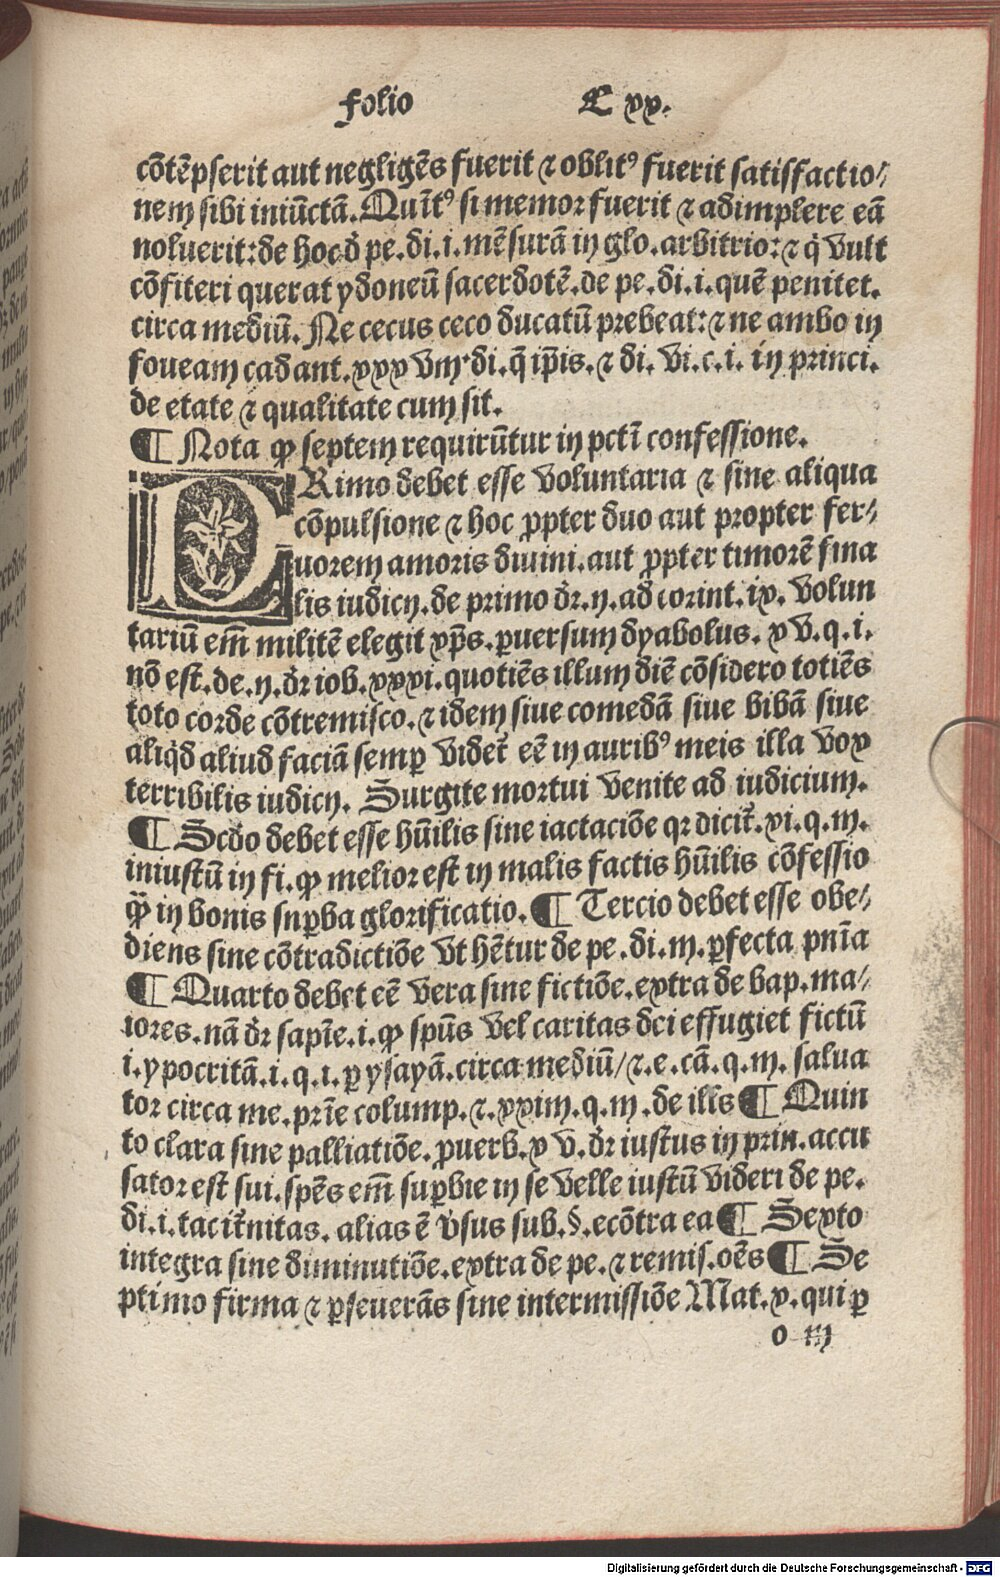 folio C xx.
cōtēpserit aut negligēs fuerit ⁊ oblitꝰ fuerit satisfactio/
nem sibi iniūctā. Quītꝰ si memor fuerit ⁊ adimplere eā
noluerit: de hoc d̄ pe. di. i. mēsurā in glo. arbitrio: ⁊ q̇ vult
cōfiteri querat ydoneū sacerdotē. de pe. di. i. quē penitet.
circa mediū. Ne cecus ceco ducatū prebeat: ⁊ ne ambo in
foueam cadant. xxx viij. di. q̄ ip̄is. ⁊ di. vi. c. i. in princi.
de etate ⁊ qualitate cum sit.
¶ Nota ꝙ septem requirūtur in pctī confessione.
PRimo debet esse voluntaria ⁊ sine aliqua
cōpulsione ⁊ hoc ꝓpter duo aut propter fer/
uorem amoris diuini. aut ꝓpter timorē fina
lis iudicij. de primo dr̄. ij. ad corint. ix. volun
tariū em̄ militē elegit xp̄s. ꝑuersum dyabolus. x v. q. i.
nō est. de. ij. dr̄ iob. xxxi. quotiēs illum diē cōsidero totiēs
toto corde cōtremisco. ⁊ idem siue comedā siue bibā siue
aliq̇d aliud faciā semꝑ videt̄ eē in auribꝰ meis illa vox
terribilis iudicij. Surgite mortui venite ad iudicium.
¶ Scdo debet esse hūilis sine iactaciōe qꝛ dicit̄. xi. q. iij.
iniustū in fi. ꝙ melior est in malis factis hūilis cōfessio
qꝫ in bonis snꝑba glorificatio. ¶ Tercio debet esse obe/
diens sine cōtradictiōe vt hētur de pe. di. iij. ꝑfecta pnīa
¶ Quarto debet eē vera sine fictiōe. extra de bap. ma/
iores. nā dr̄ sapīe. i. ꝙ spūs vel caritas dci effugiet fictū
i. ypocritā. i. q. i. ꝑ ysayā. circa mediū/ ⁊. e. cā. q. iij. salua
tor circa me. prīe colump. ⁊. xxiiij. q. iij. de illis ¶ Quin
to clara sine palliatiōe. ꝓuerb. x v. dr̄ iustus in prin. accu
sator est sui. spēs em̄ suꝑbie in se velle iustū videri de pe.
di. i. tacit̄nitas. alias ē v̓sus sub. §. ecōtra ea ¶ Sexto
integra sine diminutiōe. extra de pe. ⁊ remis. oēs ¶ Se
ptimo firma ⁊ ꝑseuerās sine intermissiōe Mat. x. qui ꝑ
o iij
Digitalisierung gefördert durch die Deutsche Forschungsgemeinschaft - DFG